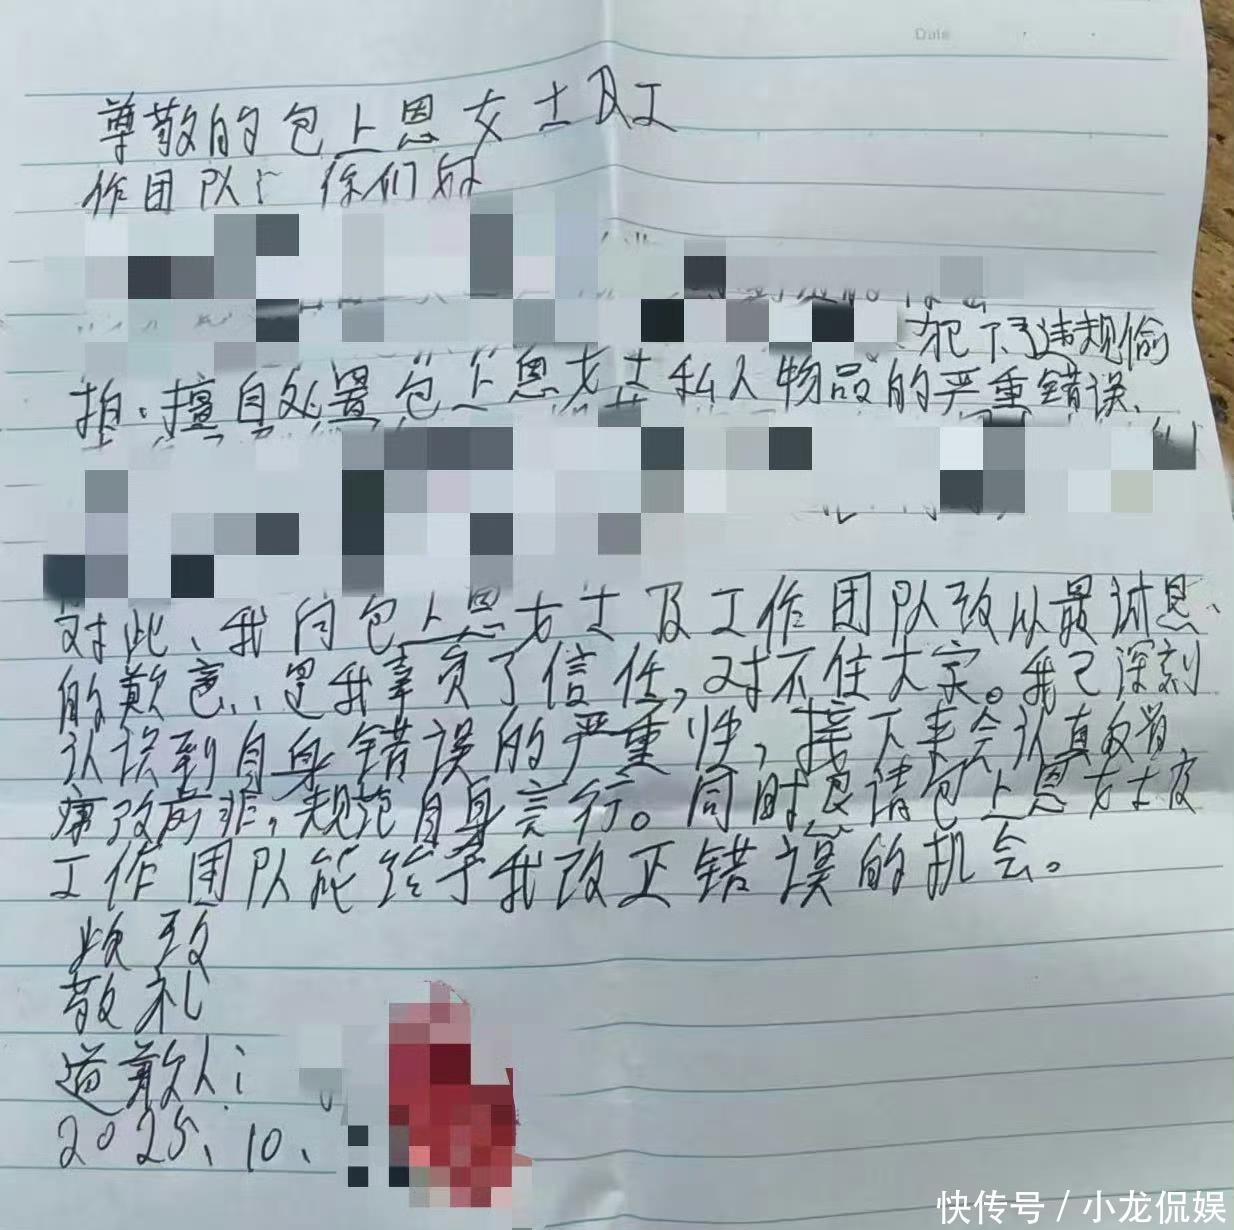 Date
尊敬的包上恩女士及工
作团队：你们好
犯下了违规偷
拍、擅自处置包上恩女士私人物品的严重错误、
对此、我向包上恩女士及工作团队致以最诚恳、
的歉意、是我辜负了信任，对不住大家。我已深刻
认识到自身错误的严重性，接下来会认真改过，
痛改前非，规范自身言行。同时恳请包上恩女士及
工作团队能给予我改正错误的机会。
顺致
敬礼
道歉人：
2025、10、
快传号 / 小龙侃娱